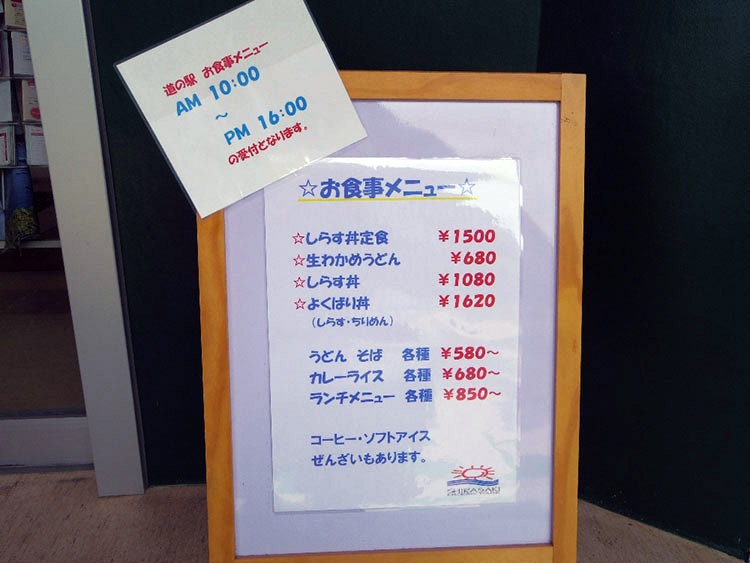 道の駅 お食事メニュー
AM 10:00
～
PM 16:00
の受付となります。
☆お食事メニュー☆
☆しらす丼定食 ¥1500
☆生わかめうどん ¥680
☆しらす丼 ¥1080
☆よくばり丼 ¥1620
(しらす・ちりめん)
うどん そば 各種 ¥580～
カレーライス 各種 ¥680～
ランチメニュー 各種 ¥850～
コーヒー・ソフトアイス
ぜんざいもあります。
SHIRASAKI